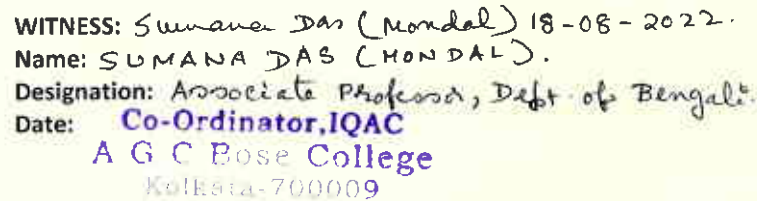 WITNESS: Sumana Das (Mondal) 18-08-2022.
Name: SUMANA DAS (MONDAL).
Designation: Associate Professor, Deft. of Bengali.
Date: Co-Ordinator,IQAC
A G C Bose College
Kolkata-700009